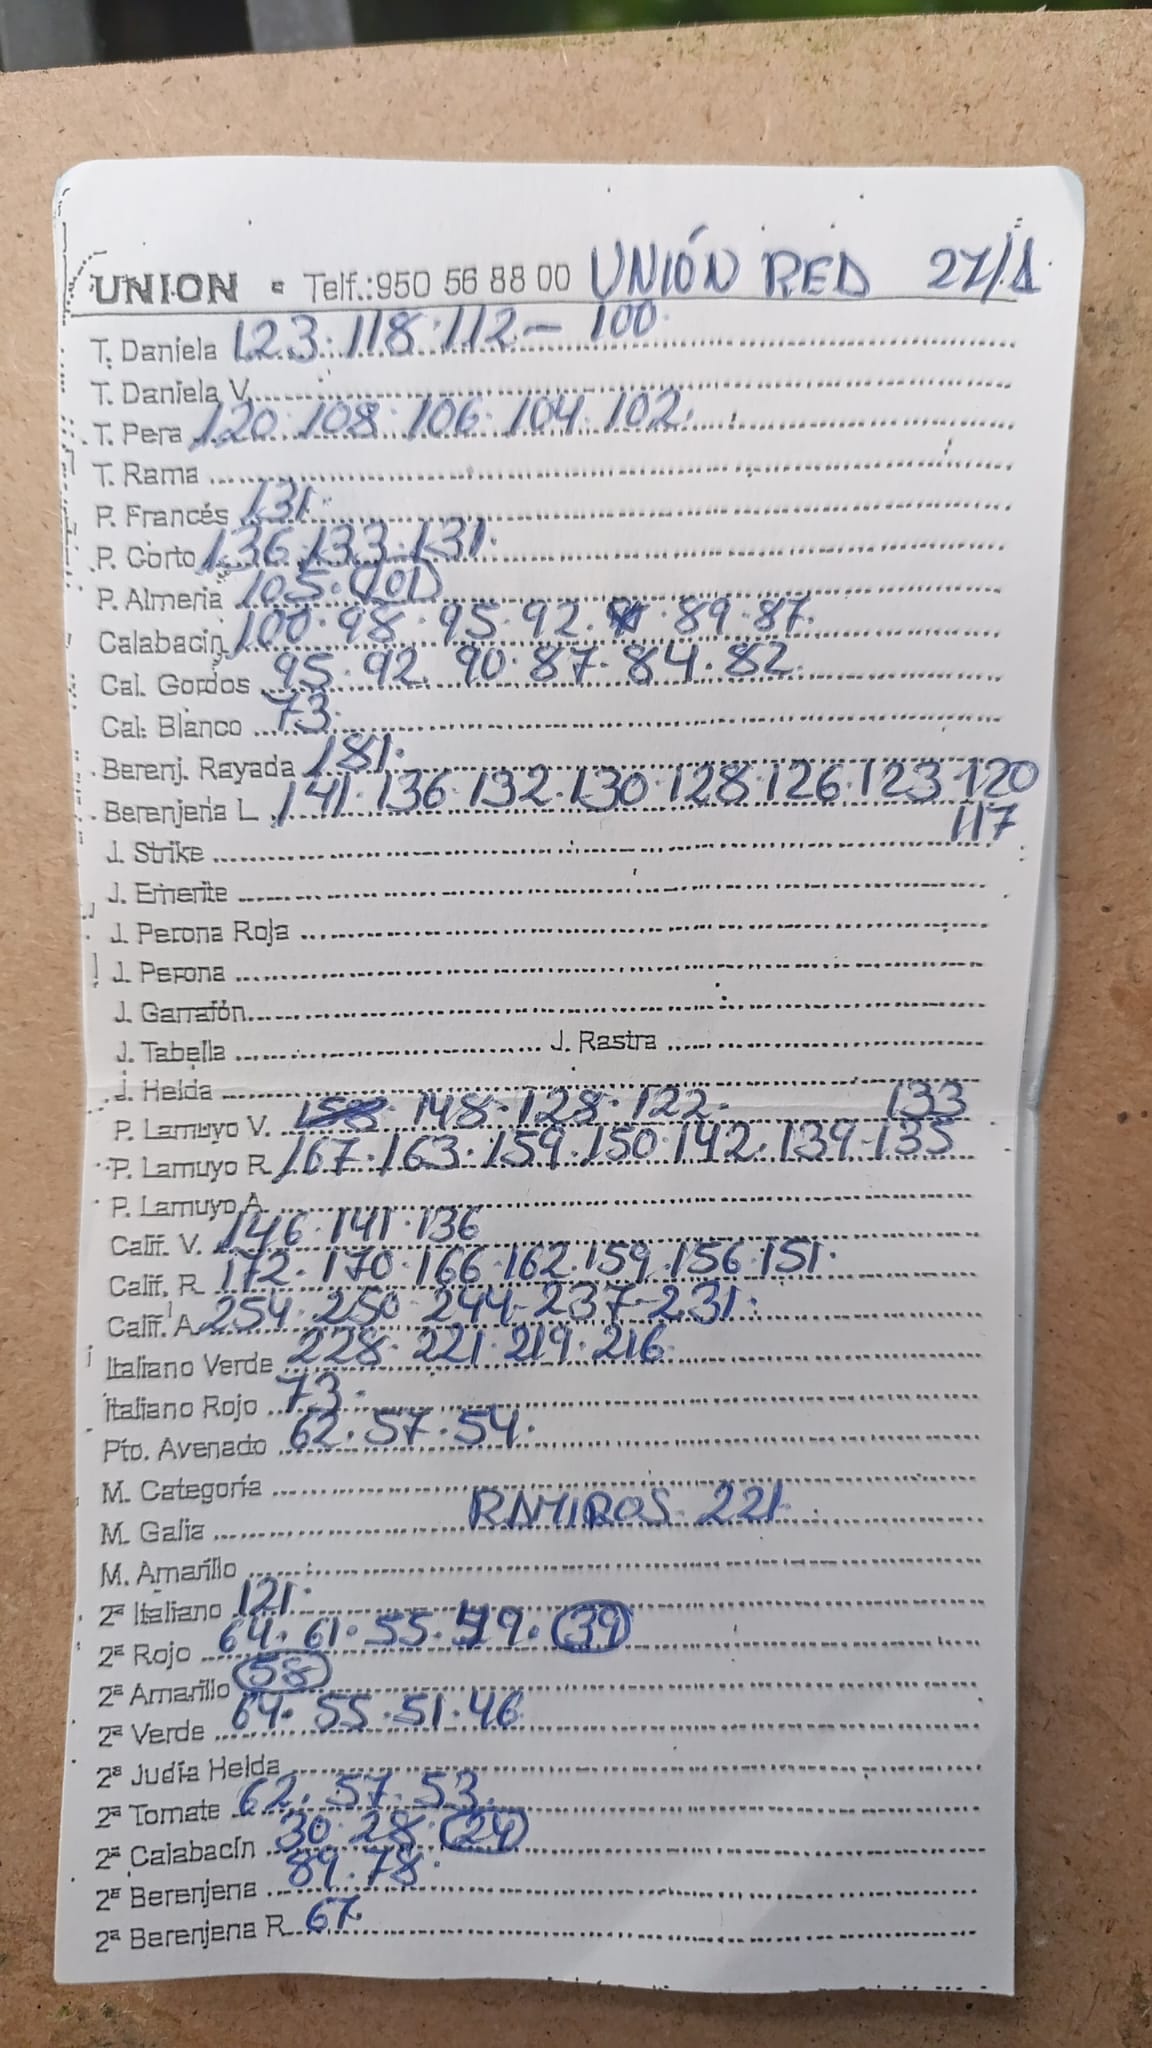 UNION - Telf.:950 56 88 00 UNIÓN RED 27/1
T. Daniela 123·118·112- 100·
T. Daniela V.
T. Pera 120·108·106·104·102·
T. Rama
P. Francés 131·
P. Corto 136·133·131·
P. Almería 105·(101)
Calabacín 100·98·95·92· ·89·87·
Cal. Gordos 95·92·90·87·84·82·
Cal. Blanco 73·
Berenj. Rayada 181·
Berenjena L 141·136·132·130·128·126·123·120
117
J. Strike
J. Emerite
J. Perona Roja
J. Perona
J. Garrafón
J. Tabella J. Rastra
J. Helda
P. Lamuyo V. 158·148·128·122· 133
P. Lamuyo R 167·163·159·150·142·139-135
P. Lamuyo A.
Calif. V. 146·141·136
Calif. R 172·170·166·162·159·156·151·
Calif. A 254·250-244-237-231·
Italiano Verde 228·221·219·216·
Italiano Rojo 73·
Pto. Avenado 62·57·54·
M. Categoría
M. Galia RAMIROS 221·
M. Amarillo
2ª Italiano 121·
2ª Rojo 64·61·55·49·(39)
2ª Amarillo (58)
2ª Verde 64·55·51·46
2ª Judía Helda
2ª Tomate 62·57·53·
2ª Calabacín 30·28·(24)
2ª Berenjena 89·78·
2ª Berenjena R 67·